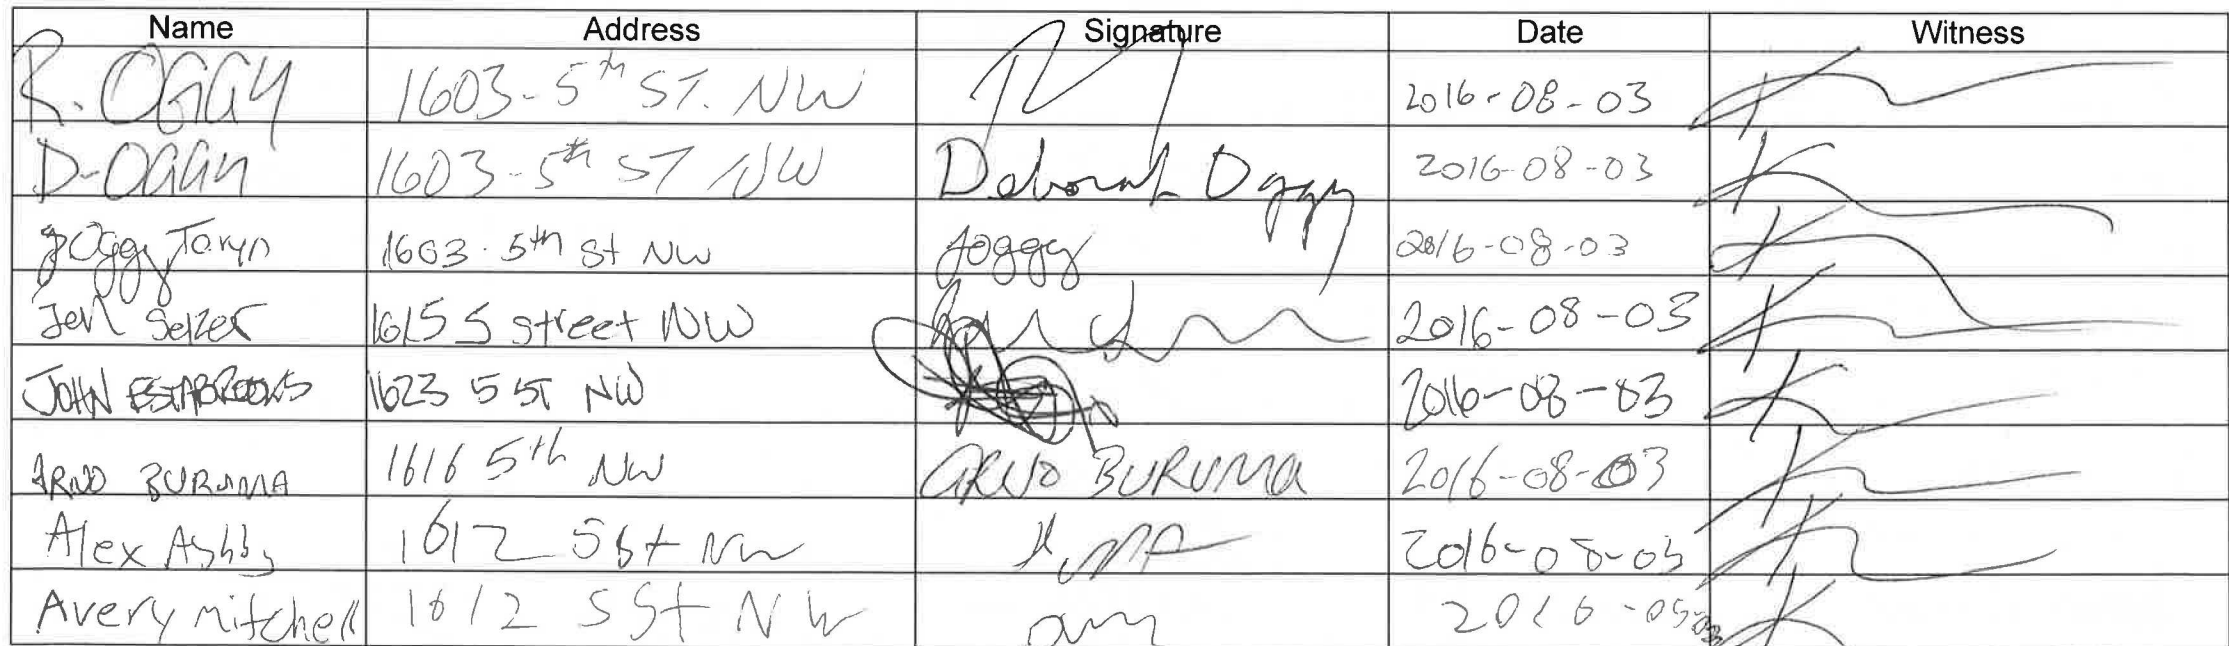 Name Address Signature Date Witness
R. OGGY 1603-5th ST. NW 2016-08-03
D-OGGY 1603-5th ST NW Deborah Oggy 2016-08-03
Oggy, Taryn 1603-5th St NW Joggy 2016-08-03
Jen Selzer 1615 5 street NW 2016-08-03
JOHN ESTABROOKS 1623 5 ST NW 2016-08-03
ARNO BURUMA 1616 5th NW ARNO BURUMA 2016-08-03
Alex Ashby 1612 5 St NW 2016-08-03
Avery Mitchell 1612 5 St NW 2016